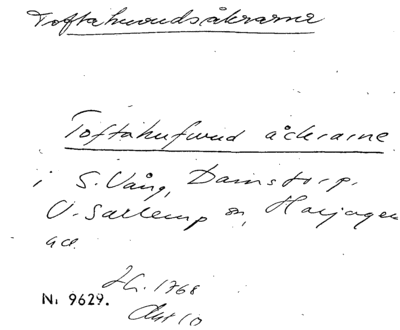 Toftahuvudsåkrarne
Toftahufvud åckrarne
i S. Vång, Damstorp.
V. Sallerup sn, Harjagers
hd.
LG. 1768
Akt 10
N: 9629.